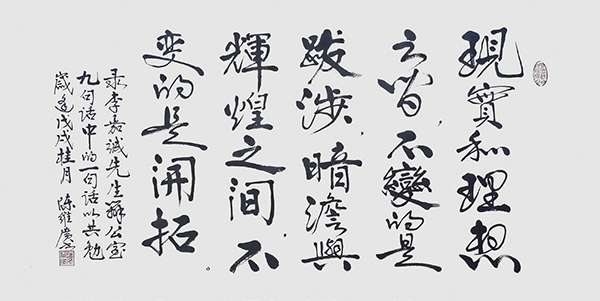 現實和理想
之间,不變的是
跋涉,暗澹與
輝煌之间,不
变的是開拓。
录李嘉誠先生辦公室
九句话中的一句话以共勉
歲逢戊戌桂月 陈維慶